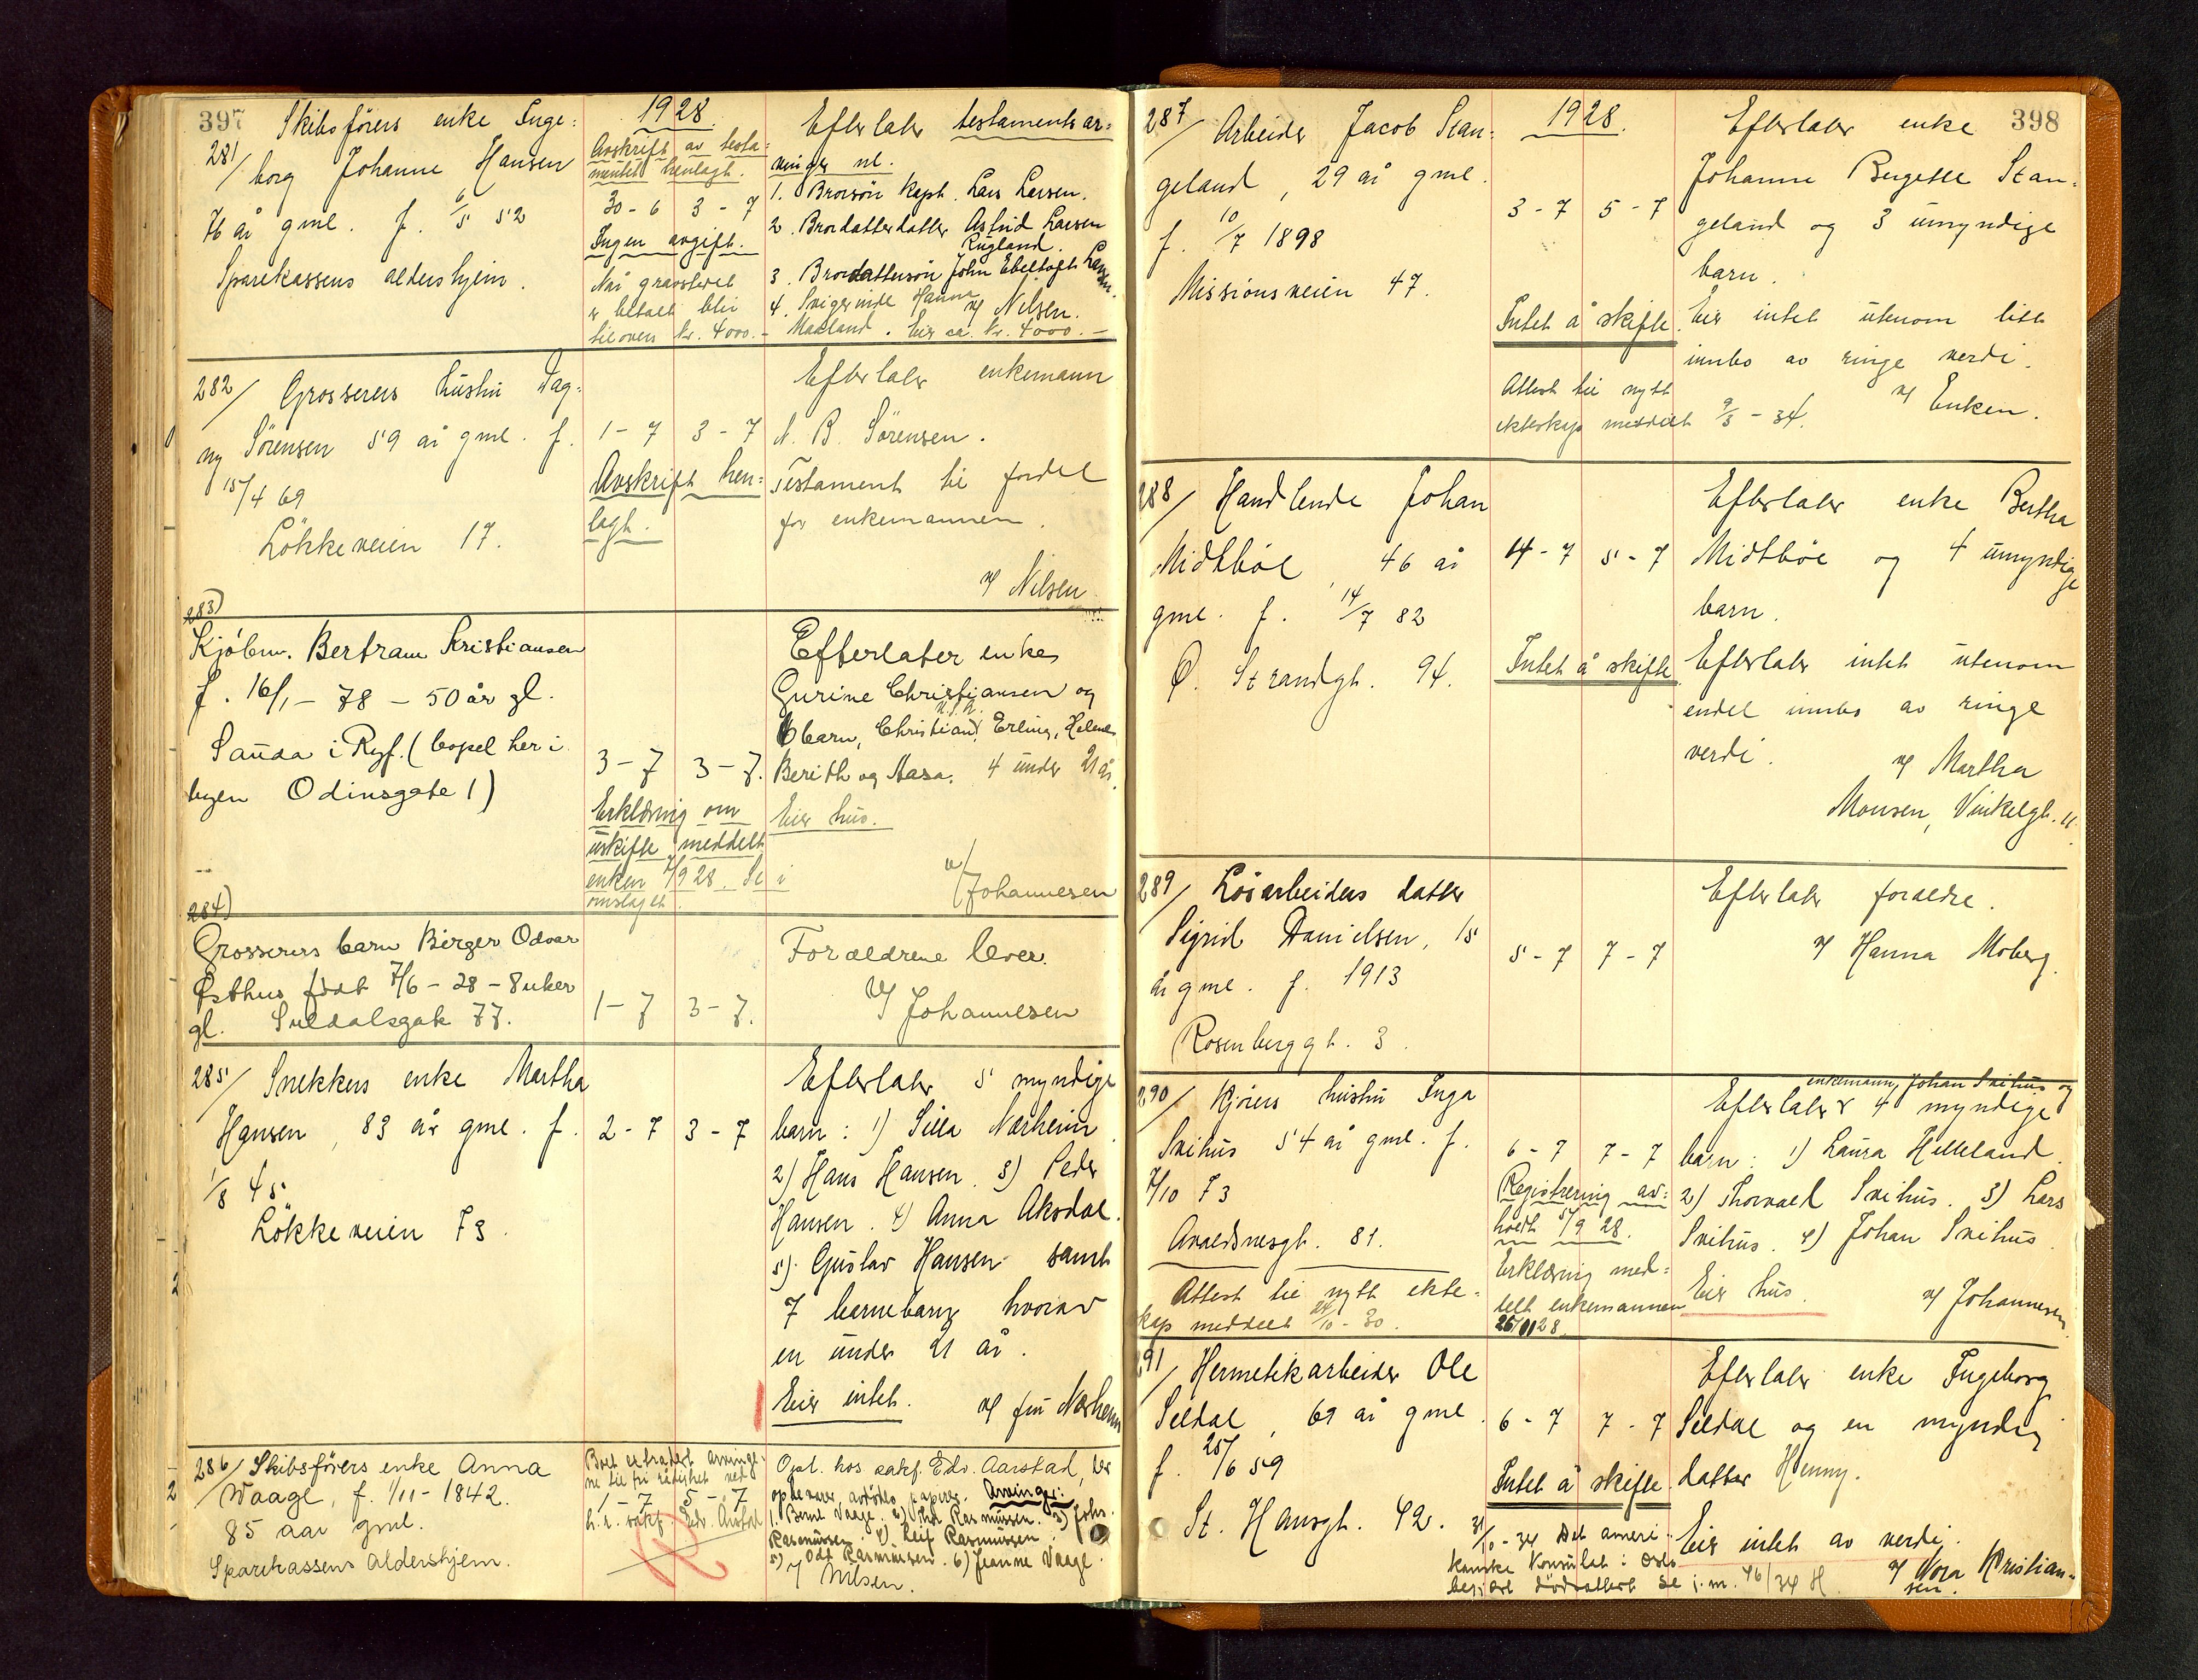 397
1928.
281/ Skibsförers enke Inge=
borg Johanne Hansen
76 år gml. f. 6/5 52
Sparekassens aldershjem.
Avskrift av testa=
mentet henlagt.
30-6 3-7
Ingen avgift.
Når gravstedet
er betalt blir
tilovers kr. 4000.-
Efterlater testamentsar=
vinger nl.
1. Brorsön kapt. Lars Larsen.
2. Brordatterdatter Astrid Larsen
Rugland.
3. Brordattersön John Ebeltoft Larsen.
4. Svigerinde Hanna
Maeland. Eier ca. kr. 4000.-
v/ Nilsen.
282/ Grosserers hustru Dag=
ny Sörensen 59 år gml. f.
15/4 69
Lökkeveien 17.
1-7 3-7
Avskrift hen=
lagt.
Efterlater enkemann
N. B. Sörensen.
Testament til fordel
for enkemannen.
v/ Nilsen
283)
Kjöbm. Bertram Kristiansen
f. 16/1 - 78 - 50 år gl.
Sauda i Ryf. (bopel her i
byen Odinsgate 1)
3-7 3-7.
Erklæring om
uskifte meddelt
enken 7/9 28. Se i
omslaget.
Efterlater enke
Gurine Christiansen og
U.S.A.
6 barn, Christian, Erling, Helene,
Berith og Aasa. 4 under 21 år.
Eier hus.
v/ Johannesen
284)
Grosserers barn Birger Odvar
Østhus født 7/6 - 28 - 8 uker
gl. Suldalsgate 77.
1-7 3-7.
Foreldrene lever.
v/ Johannesen
285/ Snekkers enke Martha
Hansen, 83 år gml. f.
1/8 45.
Lökkeveien 73.
2-7 3-7
Efterlater 5 myndige
barn: 1) Silla Nærheim.
2) Hans Hansen. 3) Peder
Hansen. 4) Anna Aksdal.
5). Gustav Hansen samt
7 barnebarn hvorav
en under 21 år.
Eier intet. v/ fru Nærheim
286/ Skibsförers enke Anna
Waage, f. 1/11 - 1842.
85 aar gml.
Sparekassens Aldershjem.
Boet extradert arvinge=
ne til fri rådighet ved
1-7 5-7
h.r. sakf. Edv. Aarstad
Opl. hos sakf. Edv. Aarstad, der
opbevarer avdödes papirer. Arvinger:
1. Bernt Vaage. 2) Thor Rasmussen. 3) Johs.
Rasmussen. 4) Leif Rasmussen.
5) Odd Rasmussen. 6) Jeanne Vaage.
v/ Nilsen.
398
1928.
287/ Arbeider Jacob Stan=
geland, 29 år gml.
f. 10/7 1898
Missionsveien 47.
3-7 5-7
Intet å skifte.
Attest til nytt
ekteskap meddelt 9/3 - 34.
Efterlater enke
Johanne Birgette Stan=
geland og 3 umyndige
barn.
Eier intet utenom litt
innbo av ringe verdi.
v/ Enken.
288/ Handlende Johan
Midtböe, 46 år
gml. f. 14/7 82
Ø. Strandgt. 94.
4-7 5-7
Intet å skifte.
Efterlater enke Bertha
Midtböe og 4 umyndige
barn.
Efterlater intet utenom
endel innbo av ringe
verdi.
v/ Martha
Monsen, Vinkelgt. 11.
289/ Lösarbeiders datter
Sigrid Danielsen, 15
år gml. f. 1913
Rosenberggt. 3.
5-7 7-7
Efterlater foreldre.
v/ Hanna Moberg.
290/ Kjörers hustru Inga
Svihus 54 år gml. f.
7/10 73
Avaldsnesgt. 81.
Attest til nytt ekte=
skap meddelt 24/10 - 30.
6-7 7-7
Registrering av=
holdt 5/9 28.
Erklæring med=
delt enkemannen
26/11 28.
enkemann Johan Svihus og
Efterlater 4 myndige
barn: 1) Laura Helleland.
2) Thorvald Svihus. 3) Lars
Svihus. 4) Johan Svihus.
Eier hus.
v/ Johannesen.
291/ Hermetikarbeider Ole
Seldal, 69 år gml.
f. 25/6 59
St. Hansgt. 42.
6-7 7-7
Intet å skifte.
Efterlater enke Ingeborg
Seldal og en myndig
datter Henny.
Eier intet av verdi.
v/ Nora Kristian=
sen.
31/10 - 34 Det ameri=
kanske konsulat i Oslo
begjært dödsattest se j.nr. 46/34 H.